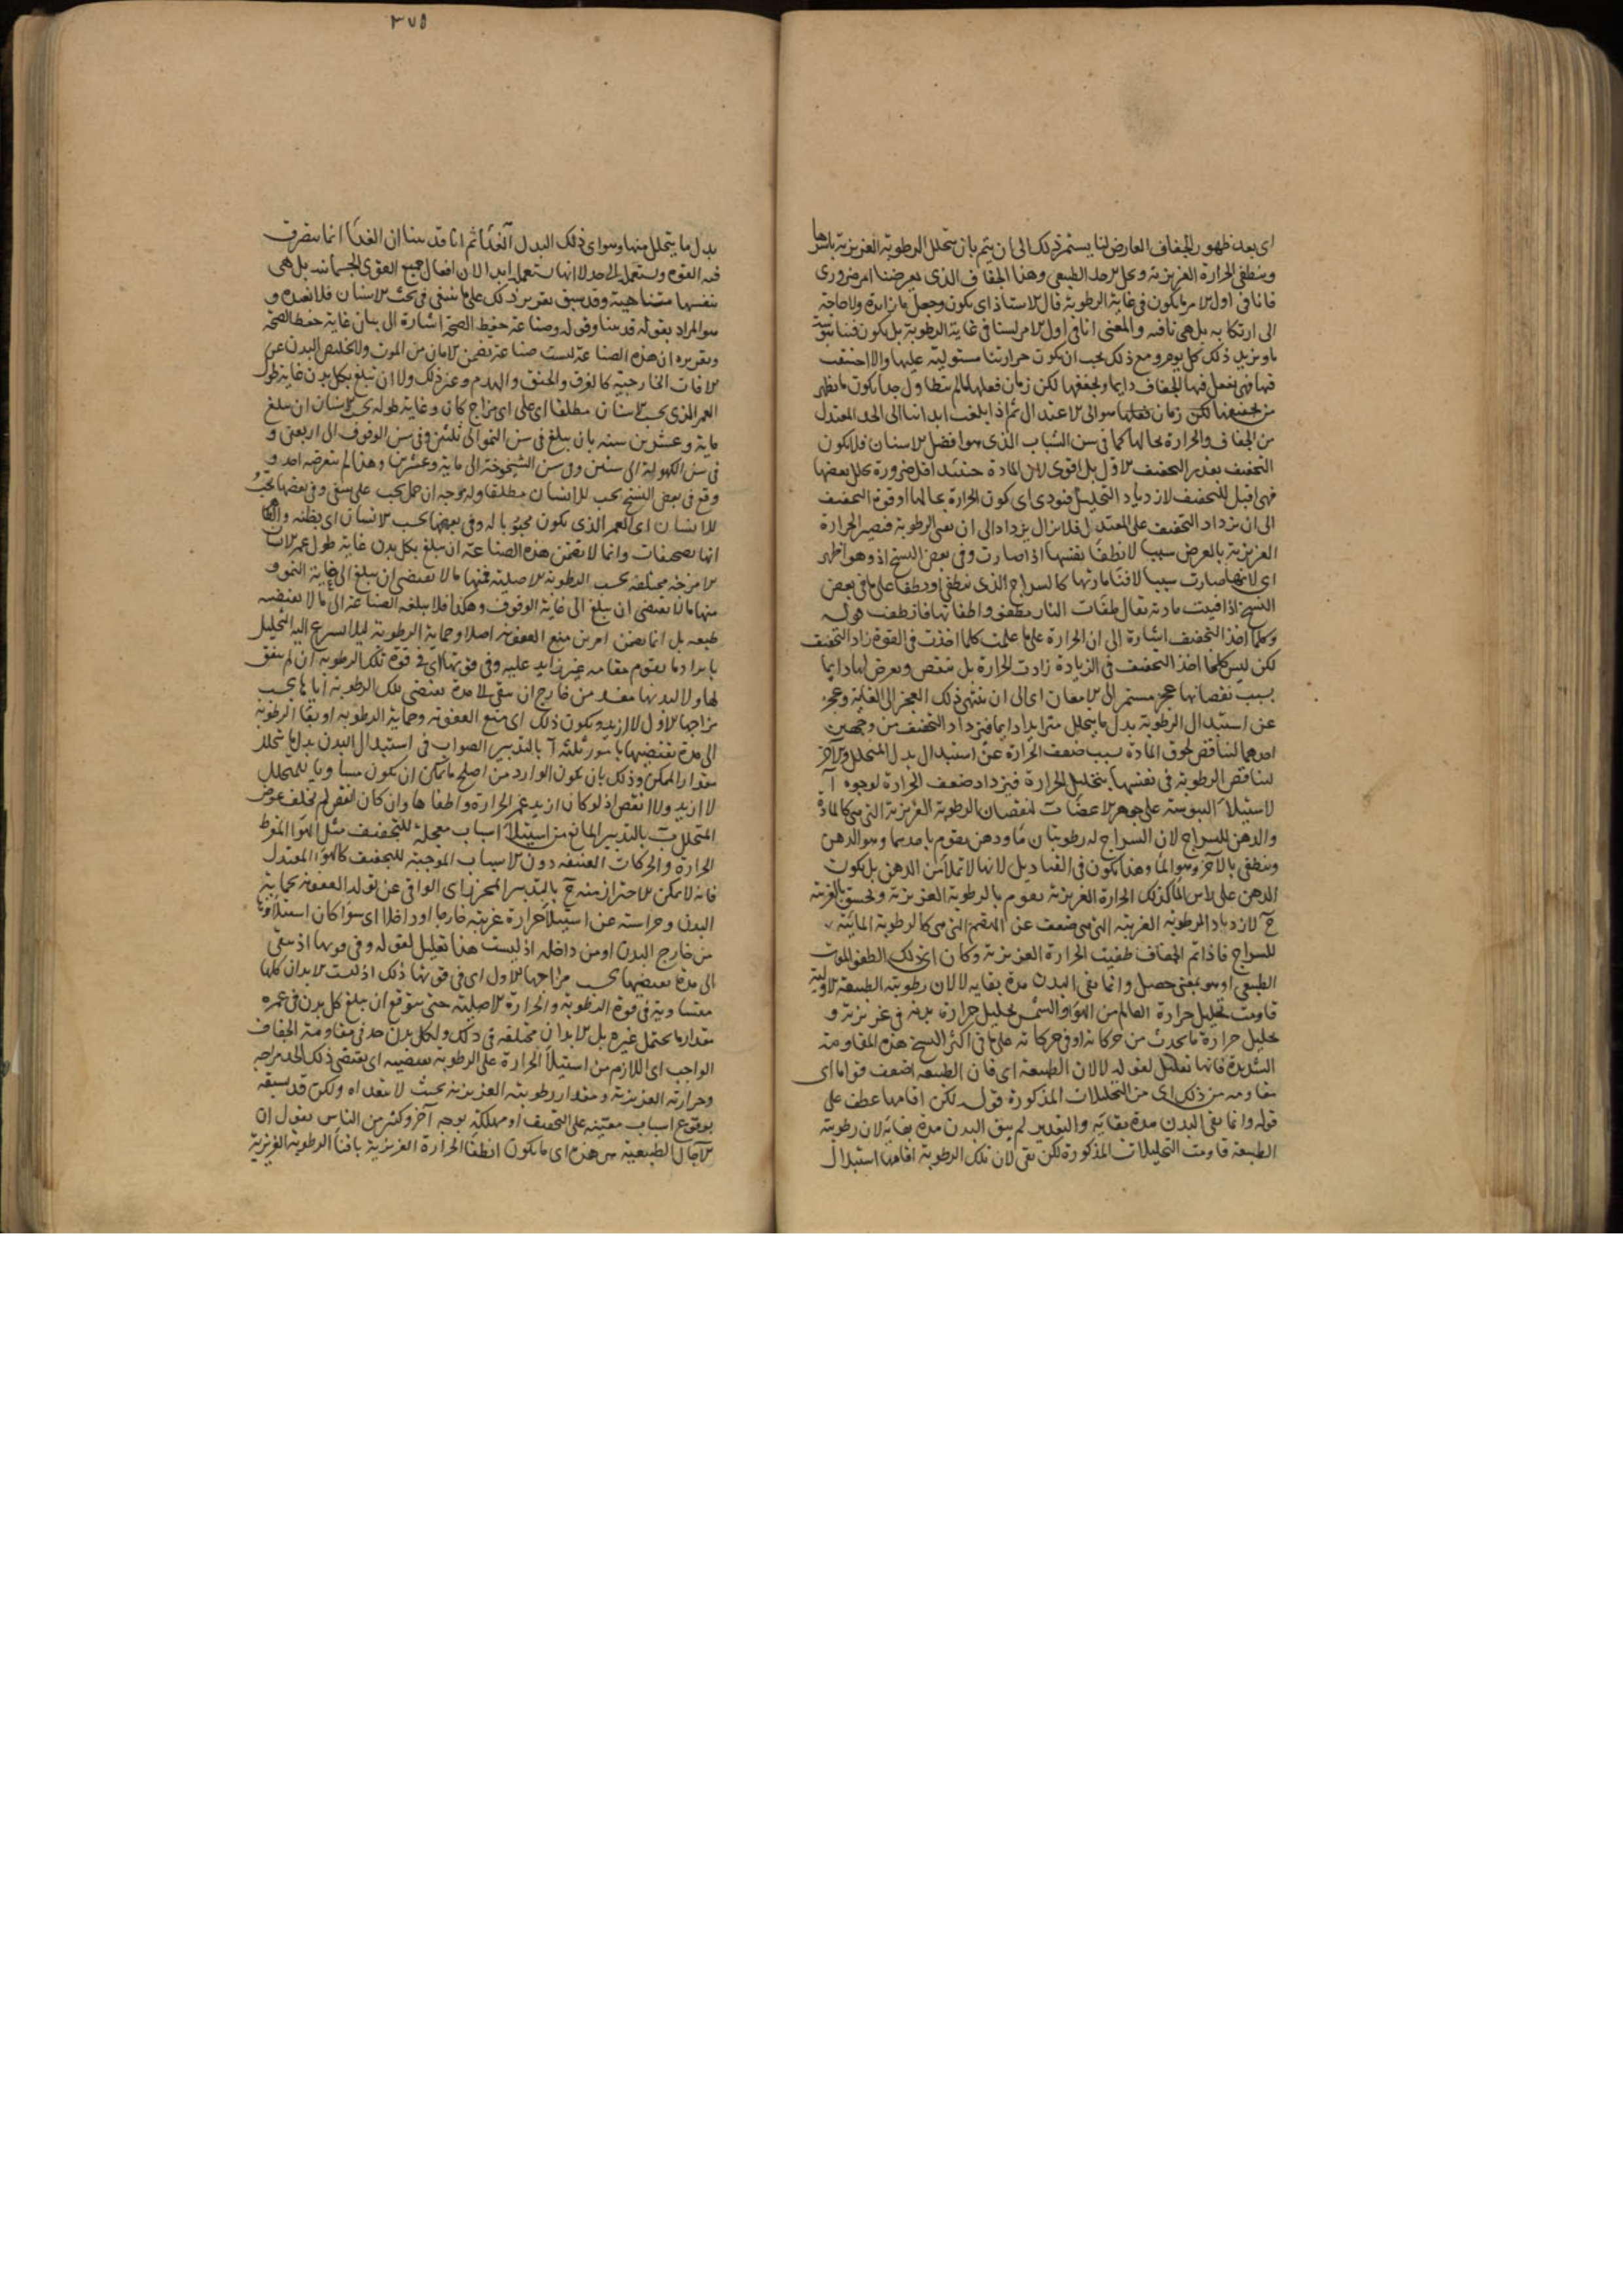 اى بعد ظهور الجفاف العارض لنا يستمر ذلك الى ان يتم بان يتحلل الرطوبة الغريزية باسرها
وينطفى الحرارة الغريزية ويحل الاجل الطبيعى وهذا الجفاف الذى يعرض لنا امر ضرورى
فانا فى اول الامر ما يكون فى غاية الرطوبة قال الاستاذ اى يكون وجعل ما زائدة ولا حاجة
الى ارتكابه بل هى نافية والمعنى انا فى اول الامر لسنا فى غاية الرطوبة بل يكون فينا يبوسة
ما ويزيد ذلك كل يوم ومع ذلك يجب ان يكون حرارتنا مستولية عليها والا احتقنت
فيها فهى يفعل فيها الجفاف دايما ويجففها لكن زمان فعلها لما لم يتطاول جدا يكون ما يظهر
من تجفيفنا لكن زمان فعلها هو الى الاعتدال ثم اذا بلغت ابداننا الى الحد المعتدل
من الجفاف والحرارة بحالها كما فى سن الشباب الذى هو افضل الاسنان فلا يكون
التجفيف بعد مثل التجفيف الاول بل اقوى لان المادة حينئذ اقل ضرورة تحلل بعضها
فهى اقبل للتجفيف لازدياد التحليل فيودى اى كون الحرارة بحالها او قوة التجفيف
الى ان يزداد التجفيف على المعتدل فلا يزال يزداد الى ان تفنى الرطوبة فيصير الحرارة
الغريزية بالعرض سببا لانطفاء نفسها اذا صارت وفى بعض النسخ اذ وهو اظهر
اى لانها صارت سببا لافناء مادتها كالسراج الذى ينطفى او يطفا على ما فى بعض
النسخ اذا فنيت مادته يقال طفئت النار تطفؤ واطفاتها فانطفت قوله
وكلما اخذ التجفيف اشارة الى ان الحرارة على ما علمت كلما اخذت فى القوة زاد التجفيف
لكن ليس كلما اخذ التجفيف فى الزيادة زادت الحرارة بل ينقص ويعرض لها دايما
بسبب نقصانها عجز مستمر الى الامعان اى الى ان ينتهى ذلك العجز الى الغاية وعجز
عن استبدال الرطوبة بدل ما يتحلل متزايدا دايما فيزداد التجفيف من وجهين
احدهما لتناقص لحوق المادة بسبب ضعف الحرارة عن استبدال بدل المتحلل والآخر
لتناقص الرطوبة فى نفسها بتحليل الحرارة فيزداد ضعف الحرارة لوجوه آ
لاستيلاء اليبوسة على جوهر الاعضاء ب لنقصان الرطوبة الغريزية التى هى كالمادة
والدهن للسراج لان السراج له رطوبتان ماء ودهن يقوم باحدهما وهو الدهن
وينطفى بالآخر وهو الماء وهذا يكون فى القناديل لانها لا تملأ من الدهن بل يكون
الدهن على راس الماء كذلك الحرارة الغريزية يقوم بالرطوبة الغريزية ويختنق بالغريبة
ج لازدياد الرطوبة الغريبة التى هى ضعف عن الهضم التى هى كالرطوبة المائية
للسراج فاذا تم الجفاف طفيت الحرارة الغريزية وكان اى ذلك الطفو الموت
الطبيعى او هو بمعنى حصل وانما بقى البدن مدة بقايه لا لان رطوبته الطبيعية الاولية
قاومت تحليل حرارة العالم من الهواء والشمس وتحليل حرارة بدنه فى غريزته و
تحليل حرارة ما يحدث من حركاته او فى حركاته على ما فى اكثر النسخ هذه المقاومة
الشديدة فانها تعليل لقوله لا لان الطبيعة اى فان الطبيعة اضعف قواما اى
مقاومة من ذلك اى من التحليلات المذكورة قوله لكن اقامها عطف على
قوله وانما بقى البدن مدة بقايه والتقدير لم يبق البدن مدة بقايه لان رطوبته
الطبيعية قاومت التحليلات المذكورة لكن بقى لان تلك الرطوبة اقامها استبدال
٣٧٥
بدل ما يتحلل منها وهو اى ذلك البدل الغذاء ثم انا قد بينا ان الغذاء انما يتصرف
فيه القوة وتستعمله الى حد لا انها تستعمله ابدا لان افعال جميع القوى الجسمانية بل هى
بنفسها متناهية وقد سبق تقرير ذلك على ما ينبغى فى بحث الاسنان فلا نعيده و
هو المراد بقوله قد بينا وقوله وصناعة حفظ الصحة اشارة الى بيان غاية حفظ الصحة
وتقريره ان هذه الصناعة ليست صناعة تضمن الامان من الموت ولا تخليص البدن عن
الآفات الخارجية كالغرق والخنق والهدم وغير ذلك ولا ان تبلغ بكل بدن غاية طول
العمر الذى يحب الانسان مطلقا اى على اى مزاج كان وغاية طوله بحسب الانسان ان يبلغ
ماية وعشرين سنة بان يبلغ فى سن النمو الى ثلثين وفى سن الوقوف الى اربعين و
فى سن الكهولة الى ستين وفى سن الشيخوخة الى ماية وعشرين وهذا لم يتعرضه احد و
وقع فى بعض النسخ يحب للانسان مطلقا وله وجه ان حمل يحب على يبقى وفى بعضها يحبه
للانسان اى العمر الذى يكون محبوبا له وفى بعضها يحسب الانسان اى يظنه والظاهر
انها تصحيفات وانما لا تضمن هذه الصناعة ان يبلغ بكل بدن غاية طول عمر لان
الامزجة مختلفة بحسب الرطوبة الاصلية فمنها ما لا يقتضى ان يبلغ الى غاية النمو و
منها ما لا يقتضى ان يبلغ الى غاية الوقوف وهكذا فلا يبلغه الصناعة الى ما لا يقتضيه
طبيعته بل انما يضمن امرين منع العفونة اصلا وحماية الرطوبة ليلا يسرع اليه التحليل
بايراد ما يقوم مقامه غير زايد عليه وفى قوتها اى فى قوة تلك الرطوبة ان لم يتفق
لها ولا لبدنها مفسد من خارج ان يبقى الى مدة يقتضى تلك الرطوبة اياها بحسب
مزاجها الاول لا ازيد ويكون ذلك اى منع العفونة وحماية الرطوبة او بقاء الرطوبة
الى مدة يقتضيها بامور ثلثة آ بالتدبير الصواب فى استبدال البدن بدل ما يتحلل
مقدار الممكن وذلك بان يكون الوارد من اصلح ما يمكن ان يكون مساويا للمتحلل
لا ازيد ولا انقص اذ لو كان ازيد غمر الحرارة واطفاها وان كان انقص لم يخلف عوض
المتحلل ب بالتدبير المانع من استيلاء اسباب معجلة للتجفيف مثل الهواء المفرط
الحرارة والحركات العنيفة دون الاسباب الموجبة للتجفيف كالهواء المعتدل
فانه لا يمكن الاحتراز منه ج بالتدبير المحرز اى الواقى عن تولد العفونة بحماية
البدن وحراسته عن استيلاء حرارة غريبة خارجا او داخلا اى سواء كان استيلاؤها
من خارج البدن او من داخله اذ ليست هذا تعليل لقوله وفى قوتها اذ يبقى
الى مدة يقتضيها بحسب مزاجها الاول اى فى قوتها ذلك اذ ليست الابدان كلها
متساوية فى قوة الرطوبة والحرارة الاصلية حتى يتوقع ان يبلغ كل بدن فى عمره
مقدار ما يحتمل غيره بل الابدان مختلفة فى ذلك ولكل بدن حد فى مقاومة الجفاف
الواجب اى اللازم من استيلاء الحرارة على الرطوبة يقتضيه اى يقتضى ذلك الحد مزاجه
وحرارته الغريزية ومقدار رطوبته الغريزية بحيث لا يتعداه ولكن قد يسبقه
بوقوع اسباب معينة على التجفيف او مهلكة بوجه آخر وكثير من الناس يقول ان
الآجال الطبيعية هى هذه اى ما يكون انطفاء الحرارة الغريزية بافناء الرطوبة الغريزية